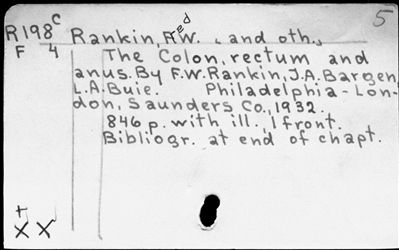 5
R198c Rankin, Fred W. , and oth.,
F 4 The Colon, rectum and
anus. By F.W. Rankin, J.A. Bargen,
L.A. Buie. Philadelphia - Lon-
don, Saunders Co., 1932.
846 p. with ill., 1 front.
Bibliogr. at end of chapt.
+
X X